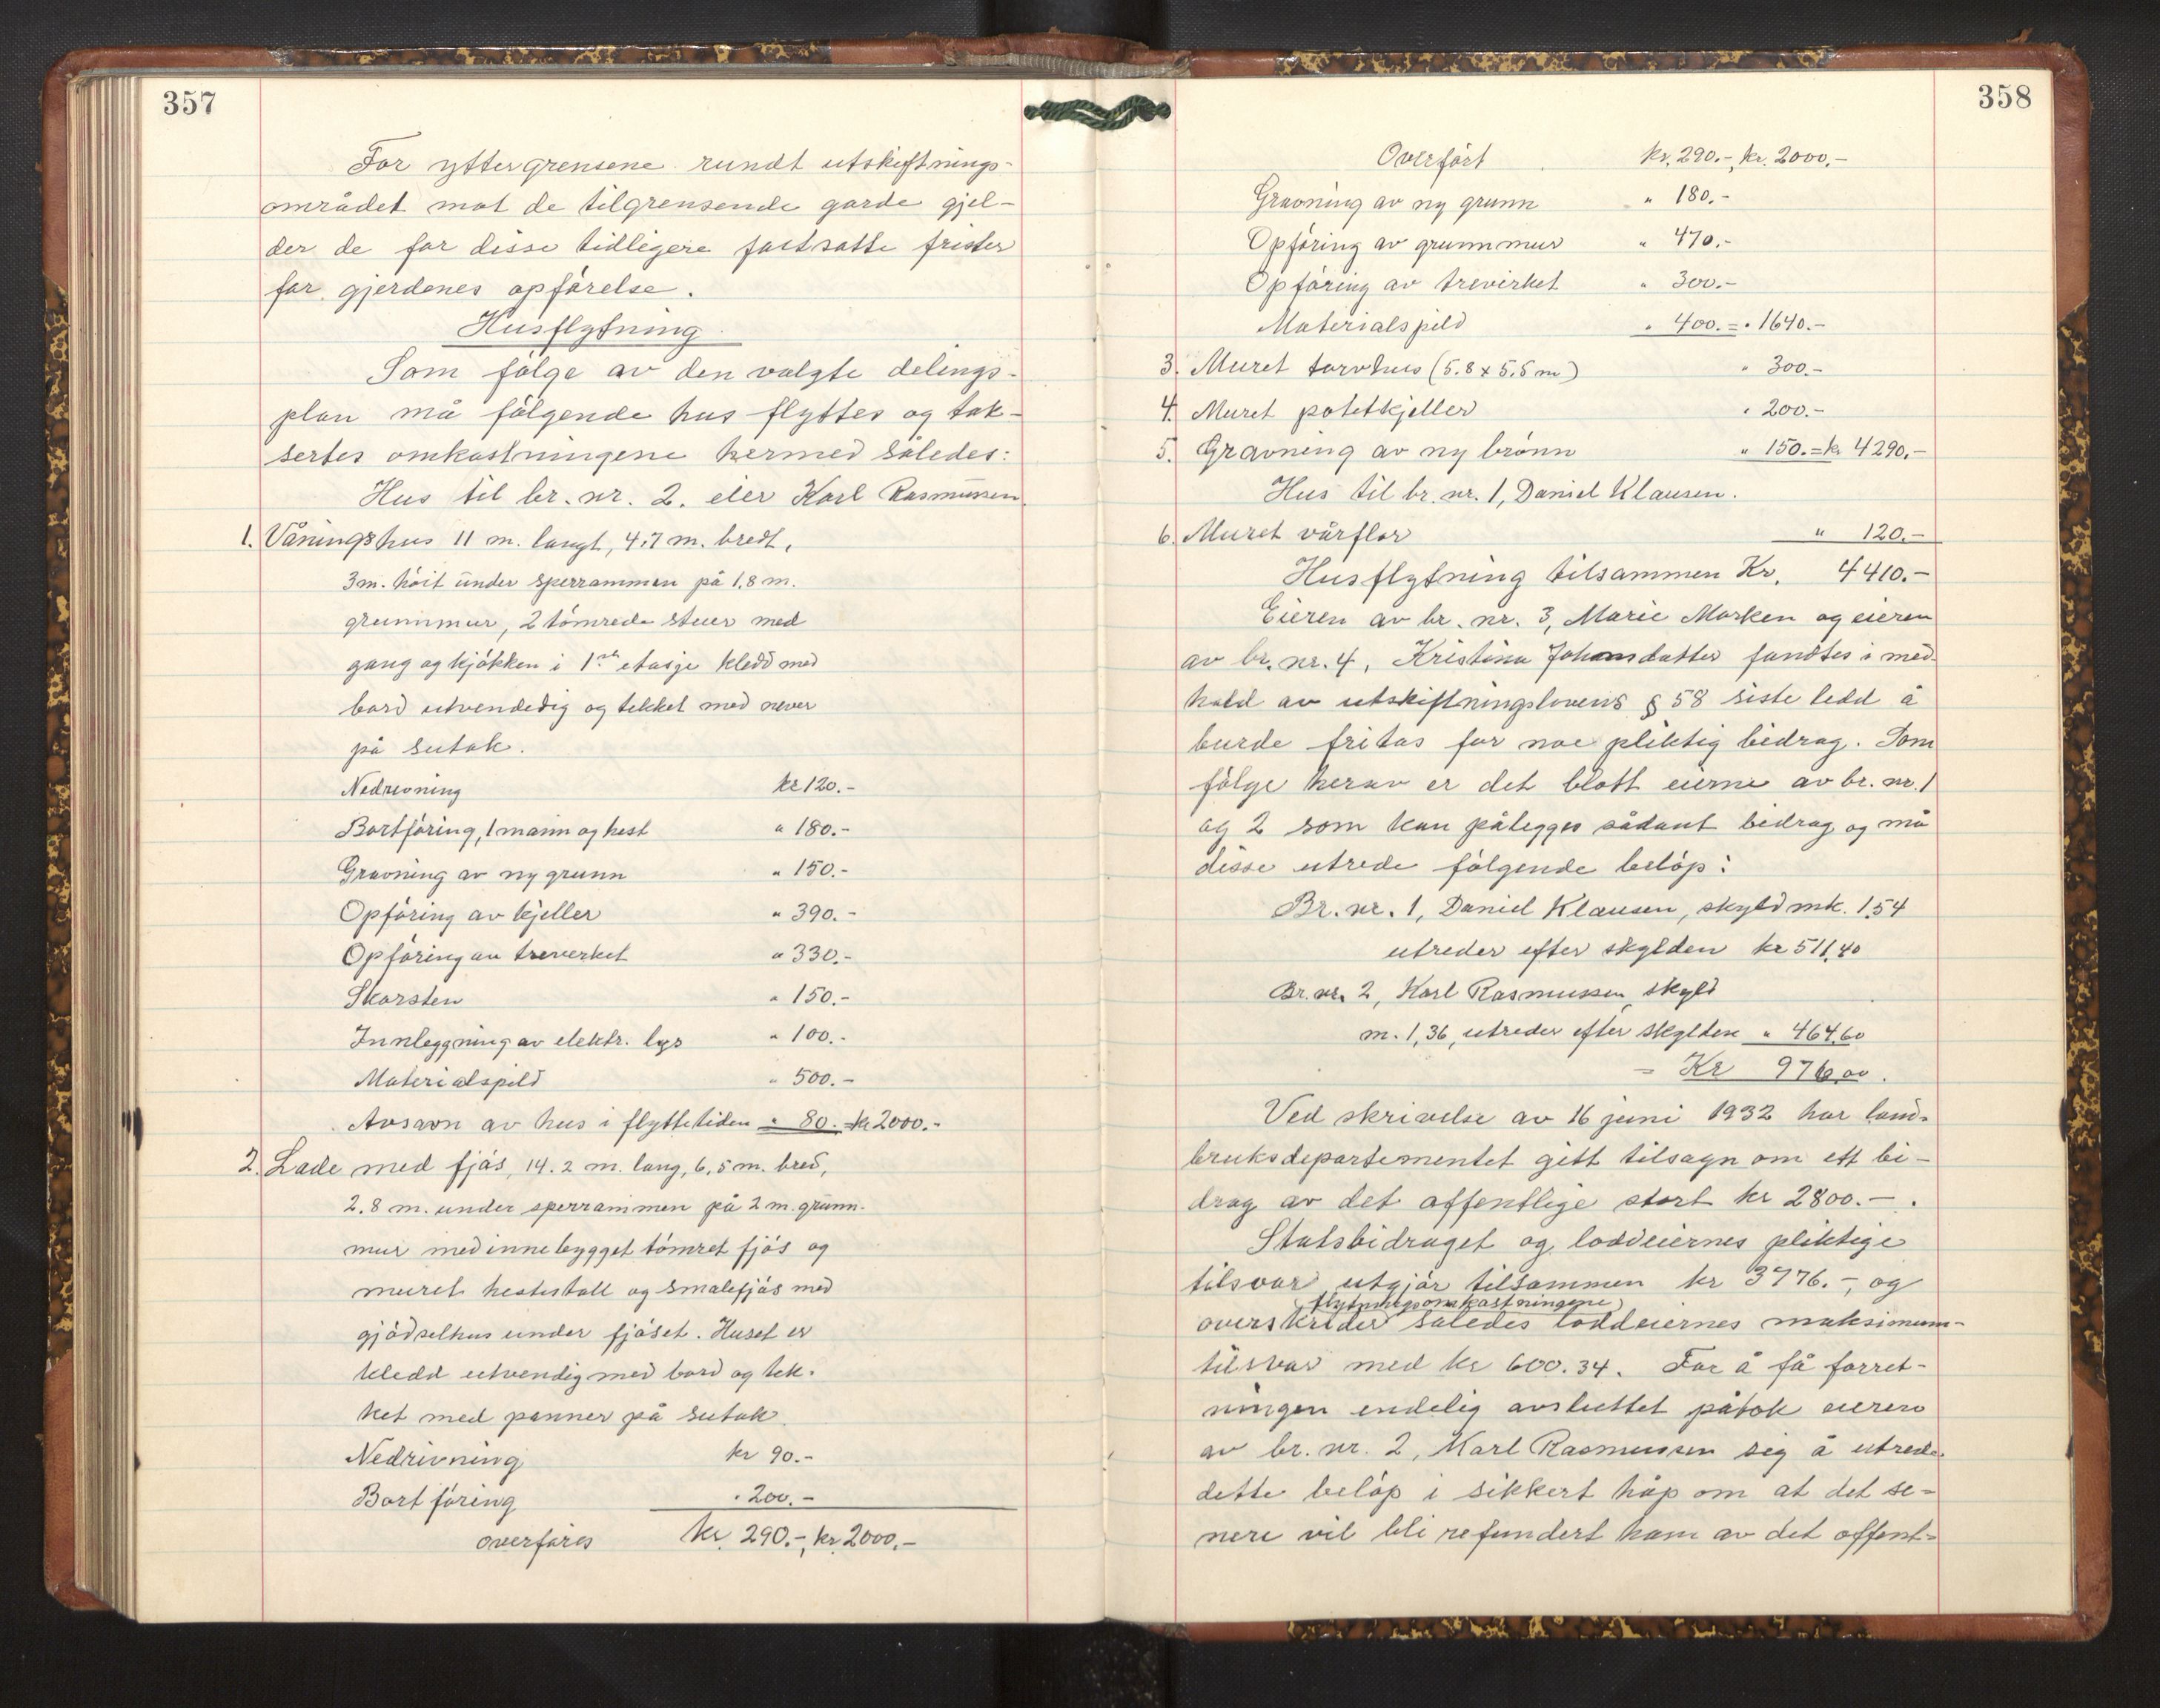 357
For yttergrensene rundt utskiftnings-
området mot de tilgrensende garde gjel-
der de for disse tidligere fastsatte frister
for gjerdenes opførelse.
Husflytning
Som følge av den valgte delings-
plan må følgende hus flyttes og tak-
sertes omkostningene hermed således:
Hus til br. nr. 2. eier Karl Rasmussen
1. Våningshus 11 m. langt, 4,7 m. bredt,
3 m. höit under sperrammen på 1,8 m.
grunnmur, 2 tömrede stuer med
gang og kjökken i 1ste etasje kledd med
bord utvendedig og tekket med never
på sutak.
Nedrivning kr 120.-
Bortföring, 1 mann og hest " 180.-
Gravning av ny grunn " 150.-
Opföring av kjeller " 390.-
Opföring av treverket " 330.-
Skorsten " 150.-
Innleggning av elektr. lys " 100.-
Materialspild " 500.-
Avsavn av hus i flyttetiden " 80.- = kr 2000.-
2. Lade med fjös, 14.2 m. lang, 6,5 m. bred,
2.8 m. under sperrammen på 2 m. grunn-
mur med innebygget tömret fjös og
muret hestestall og smalefjös med
gjödselhus under fjöset. Huset er
kledd utvendig med bord og tek-
ket med panner på sutak
Nedrivning kr 90.-
Bortföring " 200.-
overføres kr. 290.-, kr. 2000.-
358
Overfört kr. 290.-, kr. 2000.-
Gravning av ny grunn " 180.-
Opföring av grunnmur " 470.-
Opföring av trevirket " 300.-
Materialspild " 400.- = " 1640.-
3. Muret torvhus (5.8 x 5.5 m) " 300.-
4. Muret potetkjeller " 200.-
5. Gravning av ny brönn " 150.- = kr 4290.-
Hus til br. nr. 1, Daniel Klausen.
6. Muret vårflor " 120.-
Husflytning tilsammen Kr. 4410.-
Eieren av br. nr. 3, Marie Marken og eieren
av br. nr. 4, Kristina Johansdatter fandtes i med-
hold av utskiftningslovens § 58 siste ledd å
burde fritas for noe pliktig bidrag. Som
følge herav er det blott eierne av br. nr. 1
og 2 som kan pålegges sådant bidrag og må
disse utrede fölgende belöp:
Br. nr. 1, Daniel Klausen, skyld mk. 1.54
utreder efter skylden kr 511,40
Br. nr. 2, Karl Rasmussen, skyld
m. 1,36, utreder efter skylden " 464.60
= Kr 976,00.
Ved skrivelse av 16 juni 1932 har land-
bruksdepartementet gitt tilsagn om ett bi-
drag av det offentlige stort kr 2800.-.
Statsbidraget og loddeiernes pliktige
tilsvar utgjör tilsammen kr 3776.-, og
flytningsomkostningene
overskrider således loddeiernes maksimum-
tilsvar med kr 600.34. For å få forret-
ningen endelig avsluttet påtok eieren
av br. nr. 2, Karl Rasmussen sig å utrede
dette belöp i sikkert håp om at det se-
nere vil bli refundert ham av det offent-